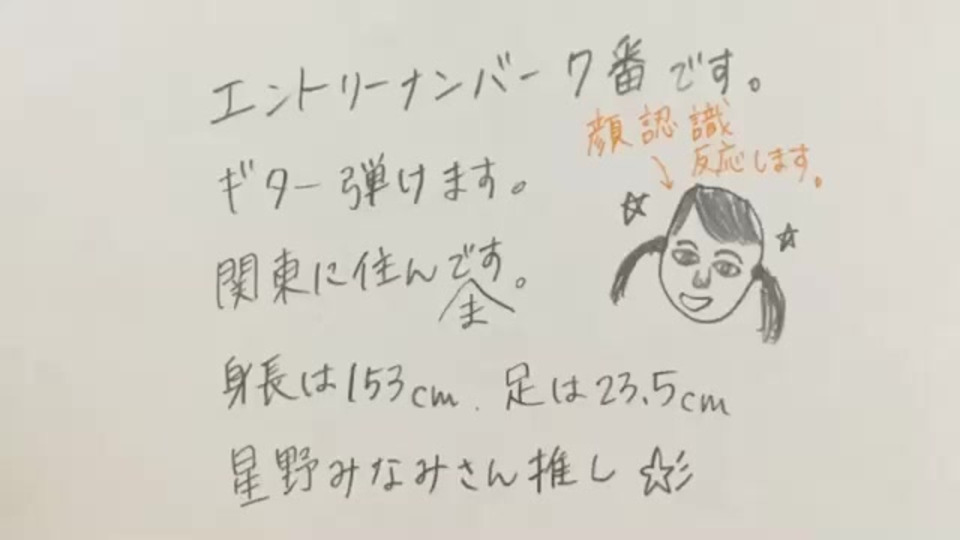 エントリーナンバー7番です。
顔認識
反応します。
ギター弾けます。
関東に住んです。
ま
身長は153cm. 足は23.5cm
星野みなみさん推し☆彡